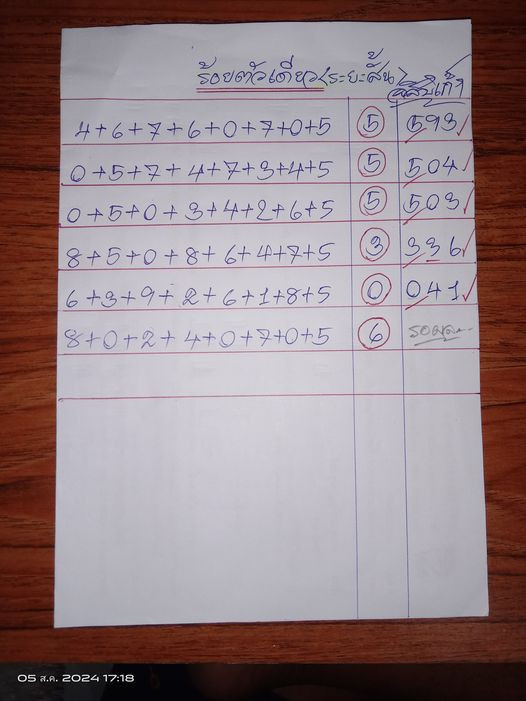 ร้อยตัวเดียว(ระยะสั้น)
4+6+7+6+0+7+0+5 5 593 ✓
0+5+7+4+7+3+4+5 5 504 ✓
0+5+0+3+4+2+6+5 5 503 ✓
8+5+0+8+6+4+7+5 3 336 ✓
6+3+9+2+6+1+8+5 0 041 ✓
8+0+2+4+0+7+0+5 6 รอผล...
05 ส.ค. 2024 17:18